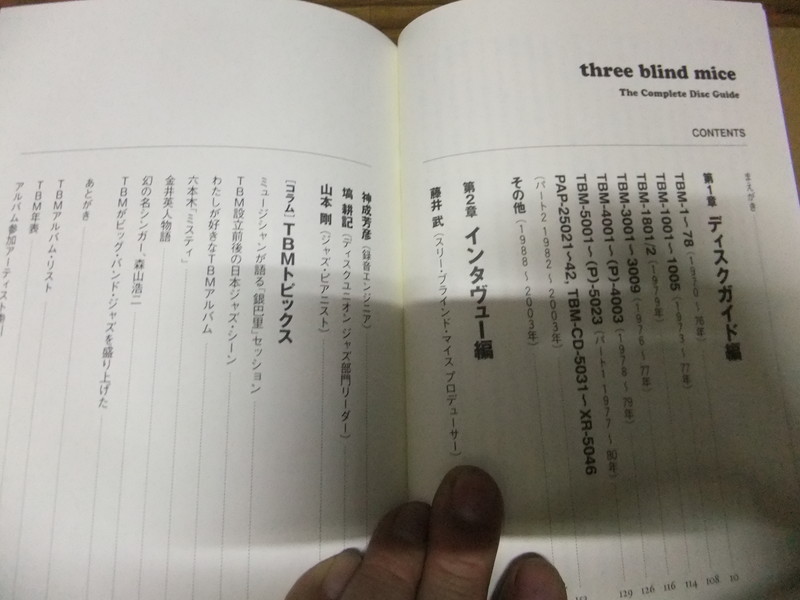 three blind mice
The Complete Disc Guide
CONTENTS
まえがき
第1章 ディスクガイド編
TBM-1〜78(1970〜76年)
TBM-1001〜1005(1973〜77年)
TBM-1801/2(1979年)
TBM-3001〜3009(1976〜77年)
TBM-4001〜(P)-4003(1978〜79年)
TBM-5001〜(P)-5023(パート1 1977〜80年)
PAP-25021〜42, TBM-CD-5031〜XR-5046
(パート2 1982〜2003年)
その他(1988〜2003年)
第2章 インタヴュー編
藤井 武(スリー・ブラインド・マイス プロデューサー)
神成芳彦(録音エンジニア)
塙 耕記(ディスクユニオン ジャズ部門リーダー)
山本 剛(ジャズ・ピアニスト)
[コラム]TBMトピックス
ミュージシャンが語る「銀巴里」セッション
TBM設立前後の日本ジャズ・シーン
わたしが好きなTBMアルバム
六本木『ミスティ』
金井英人物語
幻の名シンガー、森山浩二
TBMがビッグ・バンド・ジャズを盛り上げた
あとがき
TBMアルバム・リスト
TBM年表
アルバム参加アーティスト
10
108
114
116
126
129